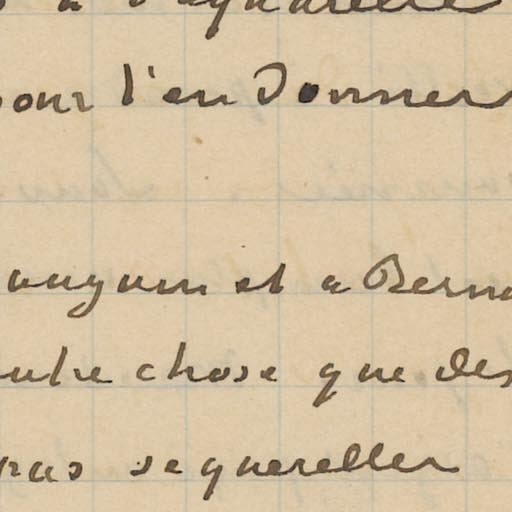 à l'aquarelle
pour l'en donner
auguin et a Bern
autre chose que des
pas se quereller